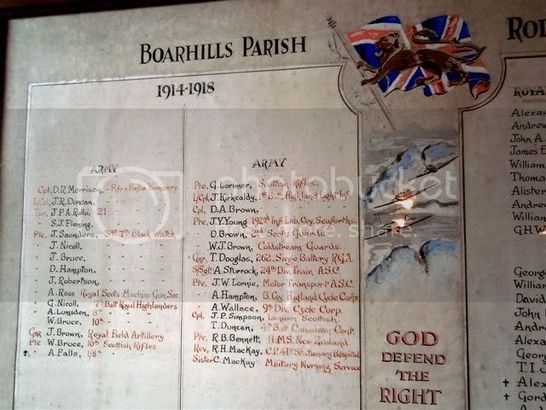 BOARHILLS PARISH
1914-1918
ARMY
Cpl, D.R. Morrison, - Fife & Forfar Yeomanry
L/Cpl, J.R. Duncan,
J.F.A. Rollo, 21
S.J. Fleming,
Pte, J. Saunders, 7th Black Watch
J. Nicoll,
J. Bruce,
D. Hampton,
J. Robertson,
A. Ross Royal Scots Machine Gun Sec
G. Nicoll, Batt Royal Highlanders
A. Lumsden, 8th
W. Bruce, 10th
Gnr J. Brown, Royal Field Artillery
Pte W. Bruce, 10th Scottish Rifles
+ A. Palls, 1/8th
ARMY
Pte, G. Lorimer, Scottish Rifles
L/Cpl J. Kirkcaldy, Batt Highland Light Inf
Cpl, D.A. Brown,
Pte, J.Y. Young 192nd Inf. Lab. Coy. Seaforths
D. Brown, 2nd Scots Guards.
W.J. Brown, Coldstream Guards.
Gnr T. Douglas, 262. Siege Battery R.G.A
S/Sgt A. Sturrock, 24th Div. Train A.S.C.
Pte, J.W. Lornie, Motor Transport A.S.C.
A. Hampton, B. Coy Highland Cycle Corps
A. Wallace, 9th Div. Cycle Corp
Cpl, J.P. Simpson, London Scottish
T. Duncan, 4th Batt Canadian Cont.
Pte, R.B. Bennett, H.M.S. New Zealand
Rev, R.H. Mackay, C.F. 41st Stationary Hospital
Sister C. Mackay Military Nursing Service
GOD
DEFEND
THE
RIGHT
Andrew
John A.
James E
William
Thomas
Alister
Andrew
William
G.H.W
George
William
David
John
Andrew
Alexan
George
T.I.J
+ Alexan
+ Gord
photobucket